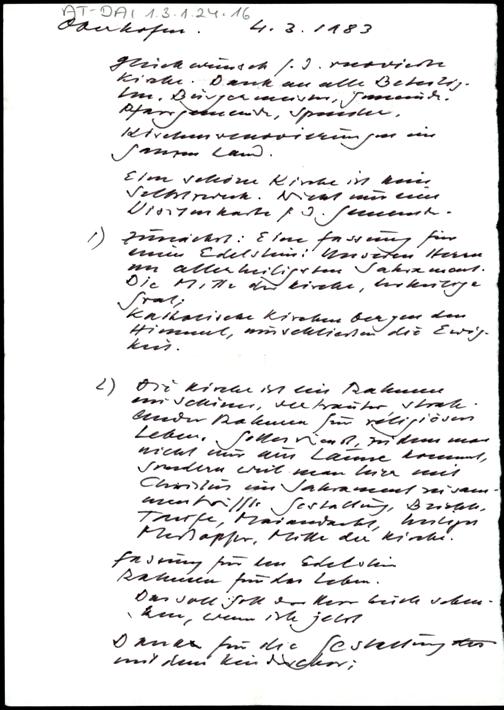 AT-DAI 1.3.1.24.16
Oberhofen. 4.3.1983
Glückwunsch f. I. renovierte
Kirche. Dank an alle Beteilig-
ten. Bürgermeister, Gemeinde.
Pfarrgemeinde, Spender.
Kirchenrenovierungen im
ganzen Land.
Eine schöne Kirche ist kein
Selbstzweck. Nicht nur eine
Visitenkarte f. I. Gemeinde.
1) Zunächst: Eine Fassung für
einen Edelstein: Unseren Herrn
im allerheiligsten Sakrament.
Die Mitte der Kirche, heilige
Gral;
Katholische Kirchen bergen den
Himmel, umschließen die Ewig-
keit.
2) Die Kirche ist ein Rahmen
ein schöner, vertrauter, strah-
lender Rahmen für religiöses
Leben. Gottesdienst, zu dem man
nicht nur aus Laune kommt,
sondern weil man hier mit
Christus im Sakrament zusam-
mentrifft. Gestaltung, Beichte,
Taufe, Maiandacht, heiliges
Messopfer, Mitte der Kirche.
Fassung für den Edelstein
Rahmen für das Leben.
Das soll Gott der Herr euch schen-
ken, wenn ich jetzt
Danke für die Gestaltung
mit dem Kinderchor;